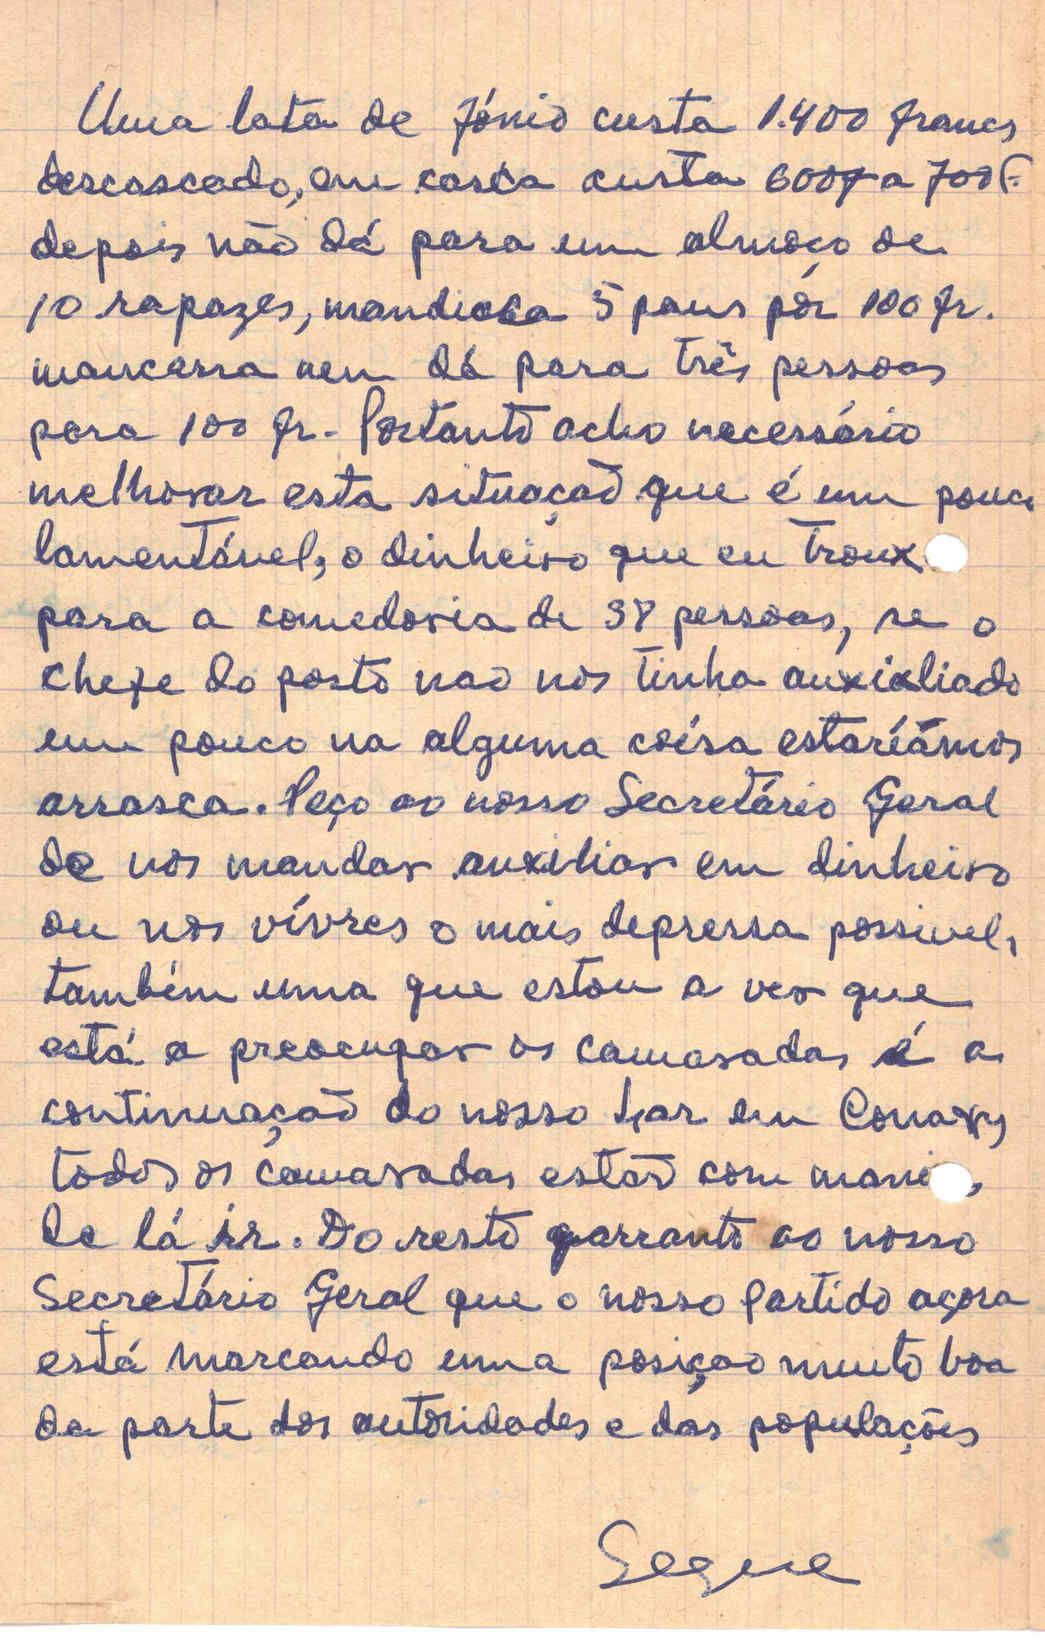 Uma lata de fónio custa 1.400 francs
descascado, em casca custa 600f a 700F.
depois não dá para um almoço de
10 rapazes, mandioca 5 paus pór 100 fr.
mancarra nem dá para três pessoas
para 100 fr. Portanto acho necessário
melhorar esta situaçaõ que é um pouco
lamentável, o dinheiro que eu troux
para a comedoria de 38 pessoas, se o
chefe do posto nao nos tinha auxiliado
um pouco na alguma coísa estaríamos
arrasca. Peço ao nosso Secretário Geral
de nos mandar auxiliar em dinheiro
ou nos vívres o mais depressa possivel,
também uma que estou a ver que
está a preocupar os camaradas é a
continuaçaõ do nosso Lar em Conakry
todos os camaradas estaõ com
de lá ir. Do resto garranto ao nosso
Secretário Geral que o nosso Partido agora
está marcando uma posiçao muito boa
da parte das autoridades e das populações
Segue